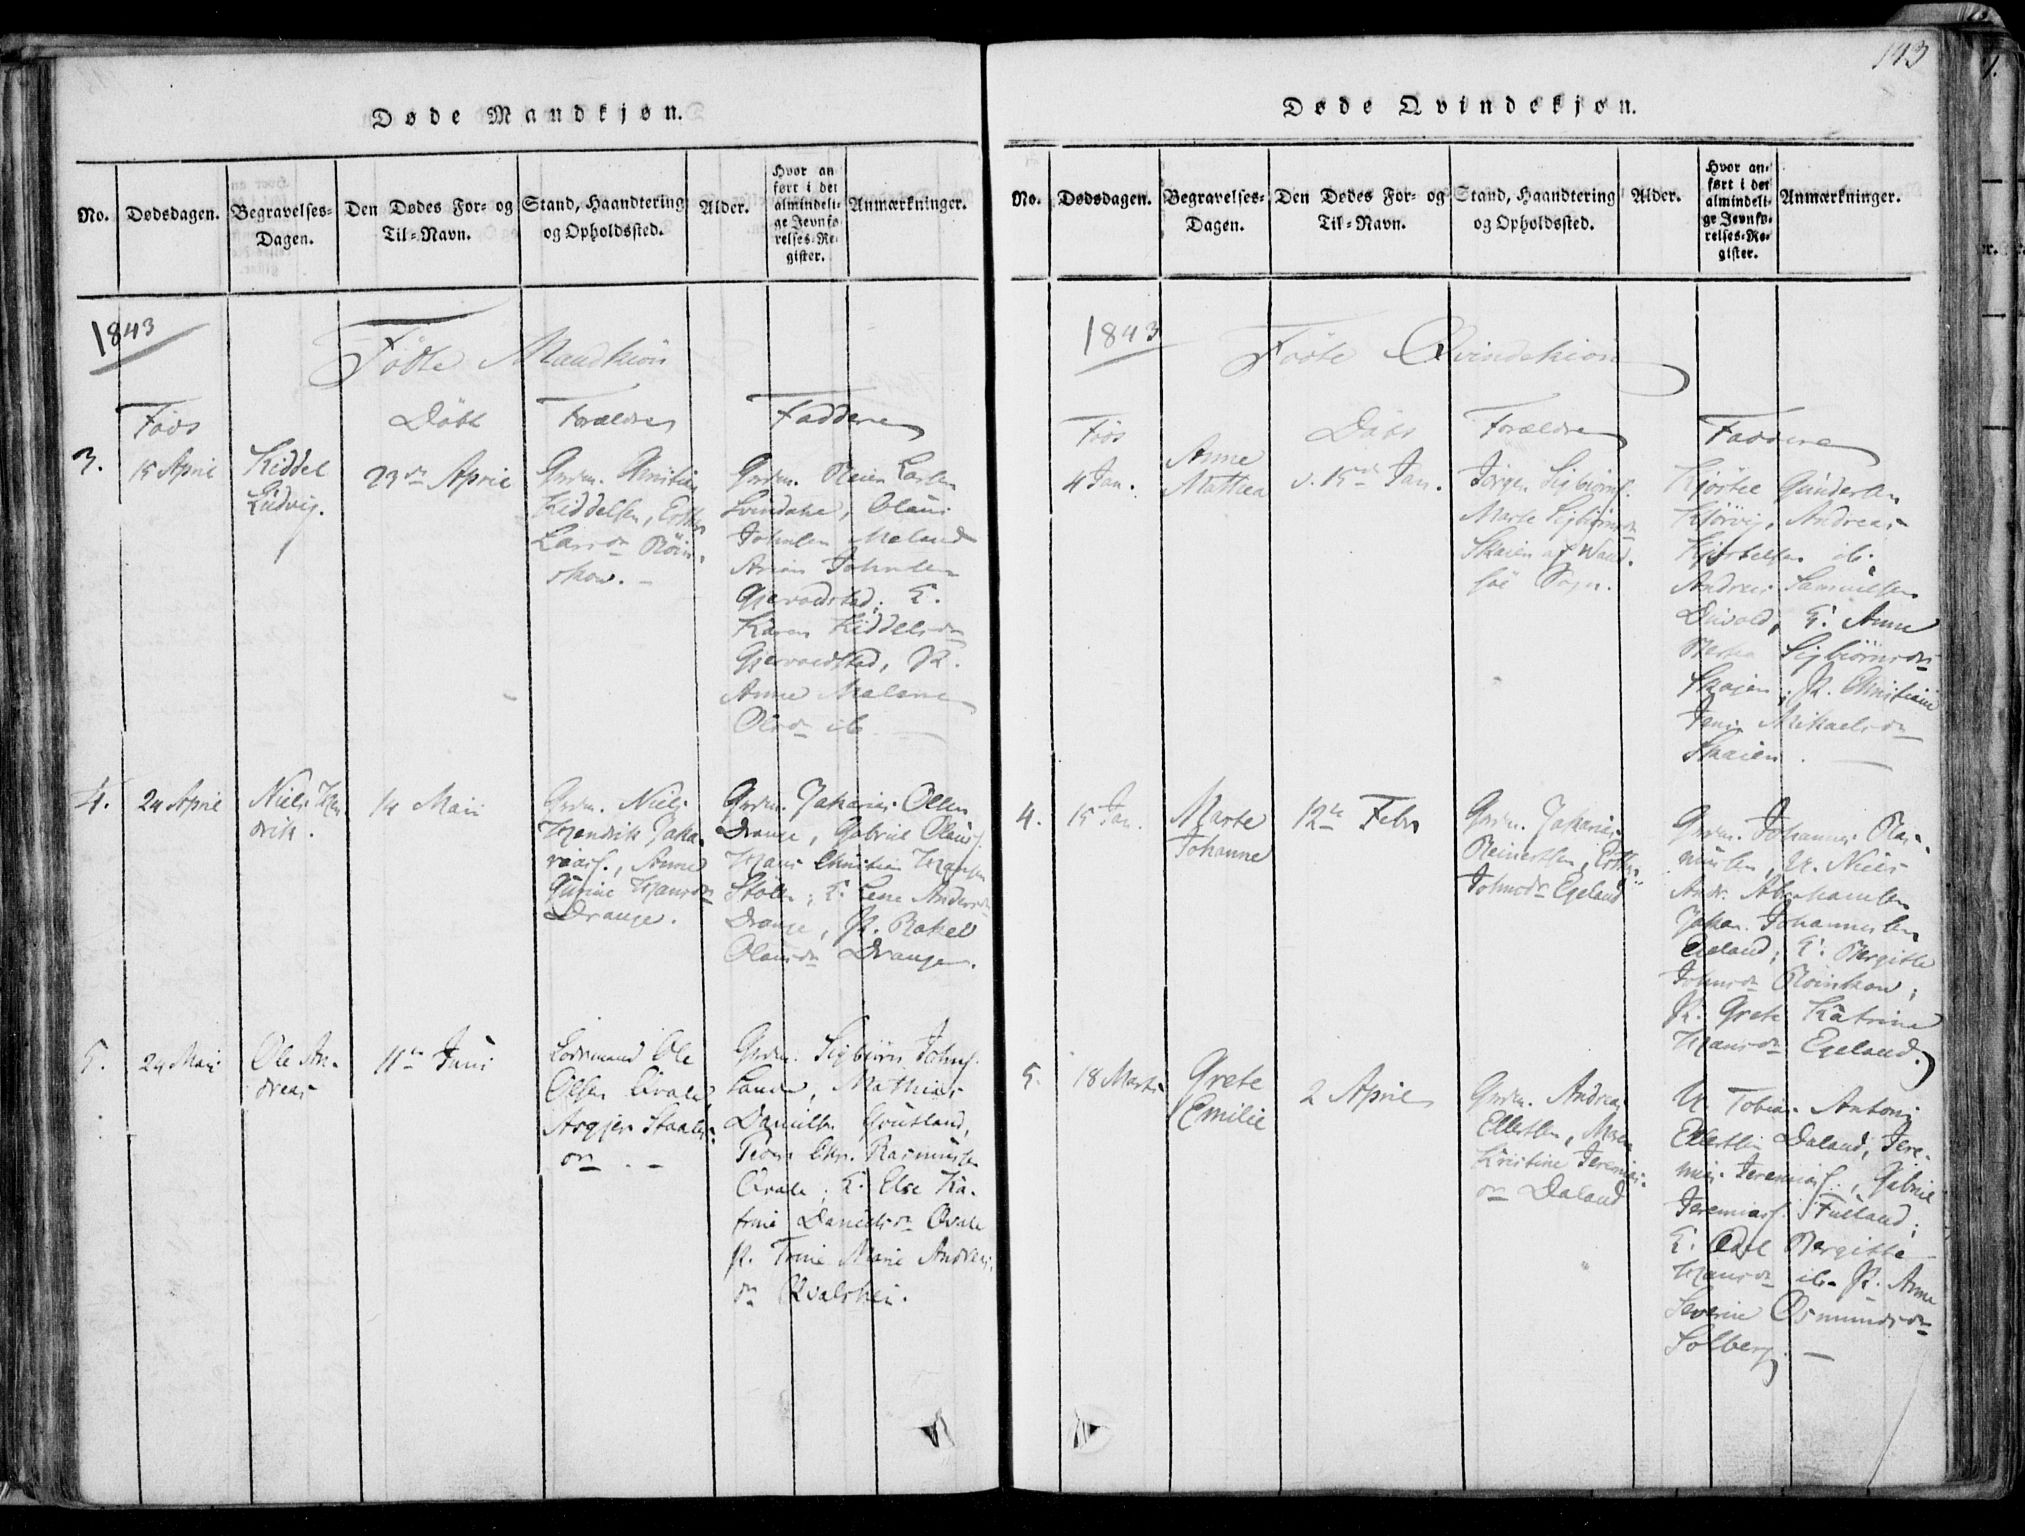 Døde Mandkjøn.
No.
Dødsdagen.
Begravelses-
Dagen.
Den Dødes For- og
Til-Navn.
Stand, Haandtering
og Opholdssted.
Alder.
Hvor an-
ført i det
almindeli-
ge Jevnfø-
relses-Re-
gister.
Anmærkninger.
1843
Födte Mandkiön
Föds
Döbt
Forældre
Faddere
3.
15 April
Kiddel
Ludvig.
23de April
Grdm.
Kiddelsen,
Larsdr
skow. -
Grdm. Reier Larsen
Svindahl, Olaus
Johnsen Meland
Johnsen
Gjervoldstad; K.
Karen Kiddelsdr
Gjervoldstad, P.
Anne Malene
Olsdr ib.
4.
24 April
Niels Hen
drik.
14 Maii
Grdm. Niels
Hendrik Zaka-
riass., Anne
Gurine Hansdr
Drange.
Grdm. Zakarias Olsen
Drange, Gabriel Olaus.
Hans Christian Hansen
K. Lene Andersdr
Drange, P. Rakel
Olausdr Drange.
5.
24 Mai
Ole An-
dreas
11te Juni
Lodsmand Ole
Olsen Qvale,
Asgjer
dr. -
Grdm. Sigbiörn Johns.
Lande, Mathias
Danielsen
Chr. Rasmussen
Qvale; K. Else Ka-
trine Danielsdr Qvale
P. Trine Marie Andreas-
dr
143
Døde Qvindekjøn.
No.
Dødsdagen.
Begravelses-
Dagen.
Den Dødes For- og
Til-Navn.
Stand, Haandtering
og Opholdssted.
Alder.
Hvor an-
ført i det
almindeli-
ge Jevnfø-
relses-Re-
gister.
Anmærkninger.
1843
Födte Qvindekion
Föds
Döbt
Forældre
Faddere
4 Jan.
Anne
Mathea
d. 15de Jan.
Jörgen Sigbiörns.
Marte Sigbiörnsdr
Skaien af Wand-
söe Sogn.
Kjöstel Gundersen
Kjörvig, Andreas
Kjöstelsen ib.
Andreas Samuelsen
K. Anne
Sigbiörnsdr
Skaien; P. Christiane
Mikaelsdr
Skaien.
4.
15 Jan.
Marte
Johanne
12te Febr
Grdm. Zakarias
Reinertsen,
Johnsdr Egeland
Grdm. Johannes Ras-
mussen, U. Niels
Andr. Abrahamsen
Zakar. Johannessen
Egeland; K. Bergitte
Johnsdr
P. Grete Katrine
Hansdr Egeland.
5.
18 Marts
Grete
Emilie
2 April
Grdm. Andreas
Ellertsen, Maren
Kristine Jeremias-
dr Daland
U. Tobias Antoni
Ellertsen Daland, Jere-
mias Jeremias., Gabriel
Jeremias.
K. Bergitte
Hansdr ib. P. Anne
Severine Osmundsdr
Solberg. -